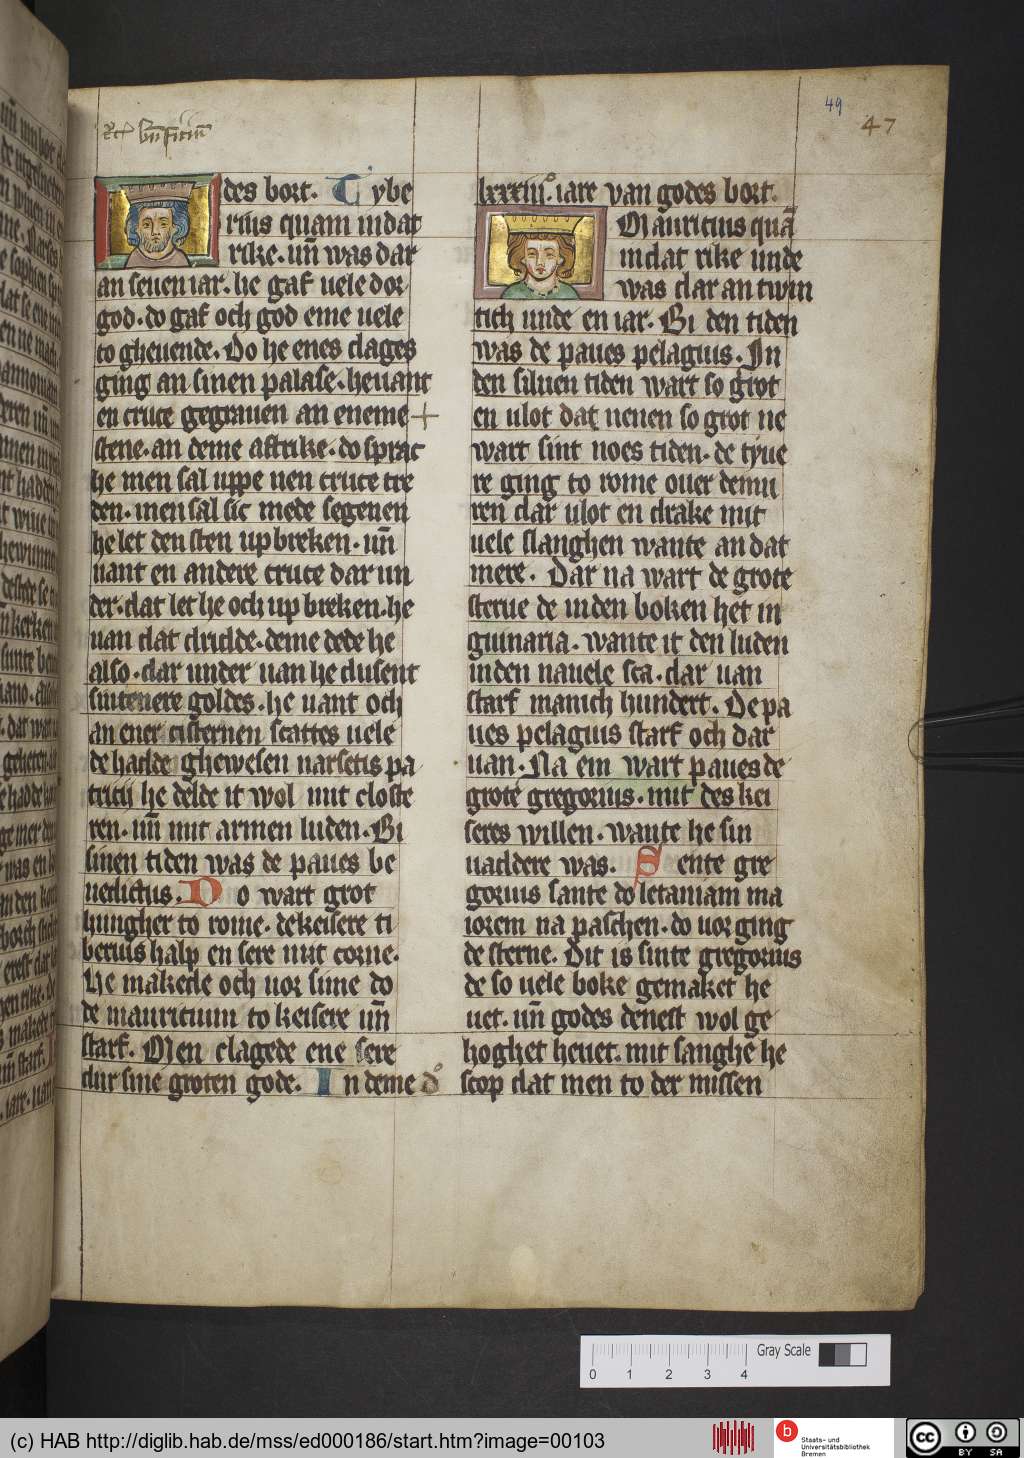 49
47
des bort. Tybe
rius quam in dat
rike. un̄ was dar
an seuen iar. he gaf uele dor
god. do gaf och god eme uele
to gheuende. Do he enes dages
ging an sinen palase. he uant
en cruce gegrauen an eneme
stene. an deme astrike. do sprac
he men sal uppe nen cruce tre
den. men sal sic mede segenen
he let den sten up breken. un̄
uant en andere cruce dar un
der. dat let he och up breken. he
uan dat dridde. deme dede he
also. dar under uan he dusent
sintenere goldes. he uant och
an ener cisternen scattes uele
de hadde ghewesen narsetis pa
tricij he delde it wol mit closte
ren. un̄ mit armen luden. Bi
sinen tiden was de paues be
nedictus. Do wart grot
hungher to rome. de keisere ti
berius halp en sere mit corne.
He makede och uor sime do
de mauricium to keisere un̄
starf. Men clagede ene sere
dur sine groten gode. In deme d°
lxxxiij°. iare van godes bort.
Mauricius quā
in dat rike unde
was dar an twin
tich unde en iar. Bi den tiden
was de paues pelagius. In
den siluen tiden wart so grot
en ulot dat nenen so grot ne
wart sint noes tiden. de tyue
re ging to rome ouer de mu
ren dar ulot en drake mit
uele slanghen wante an dat
mere. Dar na wart de grote
sterue de in den boken het in
guinaria. wante it den luden
in den nauele sca. dar uan
starf manich hundert. De pa
ues pelagius starf och dar
uan. Na em wart paues de
grote gregorius. mit des kei
seres willen. wante he sin
uaddere was. Sente gre
gorius sante do letaniam ma
iorem na paschen. do uor ging
de sterue. Dit is sinte gregorius
de so uele boke gemaket he
uet. un̄ godes denest wol ge
hoghet heuet. mit sanghe he
scop dat men to der missen
Gray Scale
0 1 2 3 4
(c) HAB http://diglib.hab.de/mss/ed000186/start.htm?image=00103
Staats- und
Universitätsbibliothek
Bremen
cc
BY SA